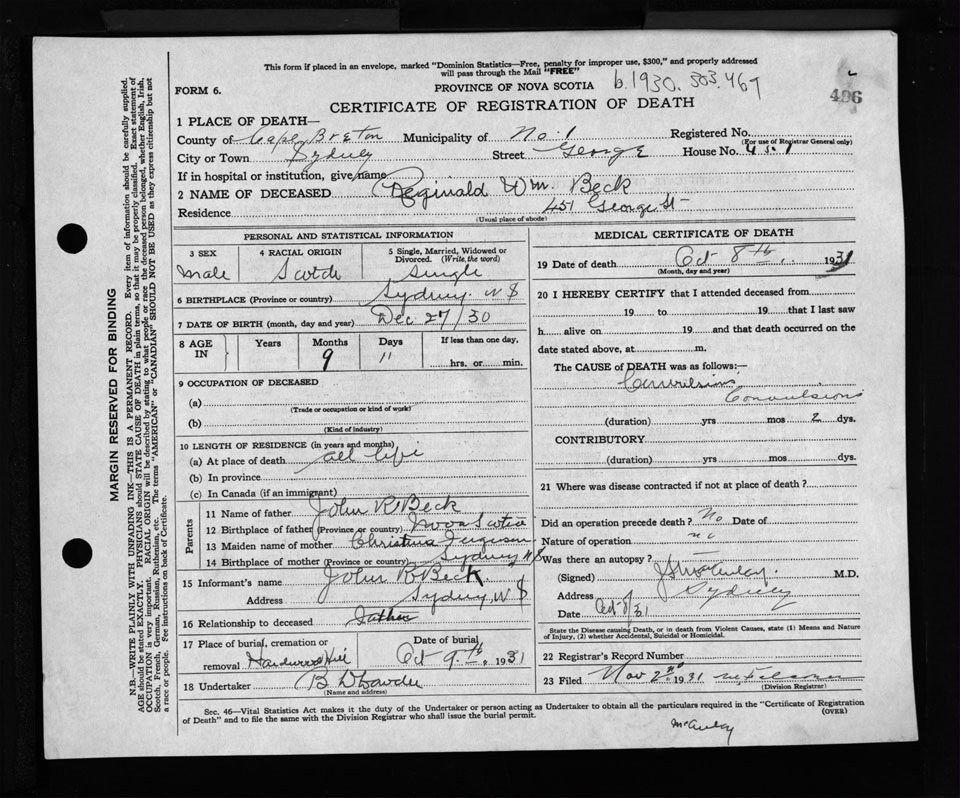 This form if placed in an envelope, marked "Dominion Statistics—Free, penalty for improper use, $300," and properly addressed
will pass through the Mail "FREE"
FORM 6.
PROVINCE OF NOVA SCOTIA b.1930. 303.467
406
CERTIFICATE OF REGISTRATION OF DEATH
1 PLACE OF DEATH—
County of Cape Breton Municipality of No. 1 Registered No.
(For use of Registrar General only)
City or Town Sydney Street George House No. 451
If in hospital or institution, give name
2 NAME OF DECEASED Reginald Wm. Beck
Residence 451 George St
(Usual place of abode)
PERSONAL AND STATISTICAL INFORMATION
3 SEX 4 RACIAL ORIGIN 5 Single, Married, Widowed or Divorced. (Write the word)
Male Scotch Single
6 BIRTHPLACE (Province or country) Sydney N S
7 DATE OF BIRTH (month, day and year) Dec 27/30
8 AGE IN Years Months Days If less than one day,
9 11 hrs. or min.
9 OCCUPATION OF DECEASED
(a)
(Trade or occupation or kind of work)
(b)
(Kind of industry)
10 LENGTH OF RESIDENCE (in years and months)
(a) At place of death all life
(b) In province
(c) In Canada (if an immigrant)
Parents
11 Name of father John R Beck
12 Birthplace of father (Province or country) Nova Scotia
13 Maiden name of mother Christina Ferguson
14 Birthplace of mother (Province or country) Sydney N S
15 Informant's name John R Beck
Address Sydney, N S
16 Relationship to deceased Father
17 Place of burial, cremation or Date of burial
removal Hardwood Hill Oct 9th, 1931
18 Undertaker
(Name and address)
MEDICAL CERTIFICATE OF DEATH
19 Date of death Oct 8th, 1931
(Month, day and year)
20 I HEREBY CERTIFY that I attended deceased from
19 to 19 that I last saw
h alive on 19 and that death occurred on the
date stated above, at m.
The CAUSE of DEATH was as follows:—
Convulsions
Convulsions
(duration) yrs mos 2 dys.
CONTRIBUTORY
(duration) yrs mos dys.
21 Where was disease contracted if not at place of death?
Did an operation precede death? No Date of
Nature of operation no
Was there an autopsy?
(Signed) M.D.
Address Sydney
Date Oct 8/31
State the Disease causing Death, or in death from Violent Causes, state (1) Means and Nature
of Injury, (2) whether Accidental, Suicidal or Homicidal.
22 Registrar's Record Number
23 Filed Nov 2nd 1931
(Division Registrar)
Sec. 46—Vital Statistics Act makes it the duty of the Undertaker or person acting as Undertaker to obtain all the particulars required in the "Certificate of Registration
of Death" and to file the same with the Division Registrar who shall issue the burial permit. (OVER)
McAulay
MARGIN RESERVED FOR BINDING
N.B.—WRITE PLAINLY WITH UNFADING INK—THIS IS A PERMANENT RECORD. Every item of information should be carefully supplied.
AGE should be stated EXACTLY. PHYSICIANS should STATE CAUSE OF DEATH in plain terms, so that it may be properly classified. Exact statement of
OCCUPATION is very important. RACIAL ORIGIN will be described by stating to what people or race the deceased person belonged, whether English, Irish,
Scotch, French, German, Russian, Ruthenian, etc. The terms "AMERICAN" or "CANADIAN" SHOULD NOT BE USED as they express citizenship but not
a race or people. Fee instructions on back of Certificate.